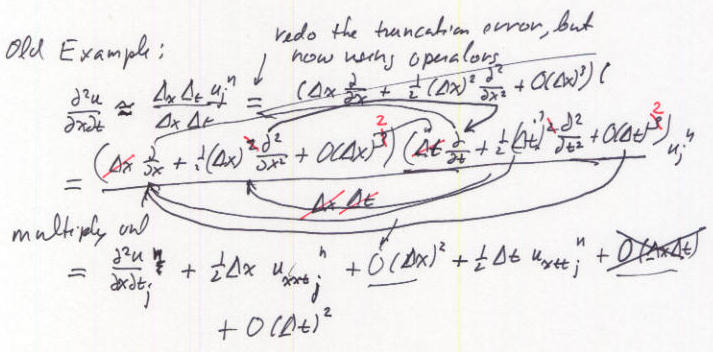 redo the truncation error, but
Old Example: now using operators
∂²u/∂x∂t ≈ Δx Δt u_j^n / Δx Δt = (Δx ∂/∂x + 1/2 (Δx)² ∂²/∂x² + O(Δx)³) (
= (Δx ∂/∂x + 1/2 (Δx)² ∂²/∂x² + O(Δx)³ 2) (Δt ∂/∂t + 1/2 (Δt)² ∂²/∂t² + O(Δt)³ 2) u_j^n
Δx Δt
multiply out
= ∂²u/∂x∂t_j^n + 1/2 Δx u_xxt_j^n + O(Δx)² + 1/2 Δt u_xtt_j^n + O(ΔxΔt)
+ O(Δt)²